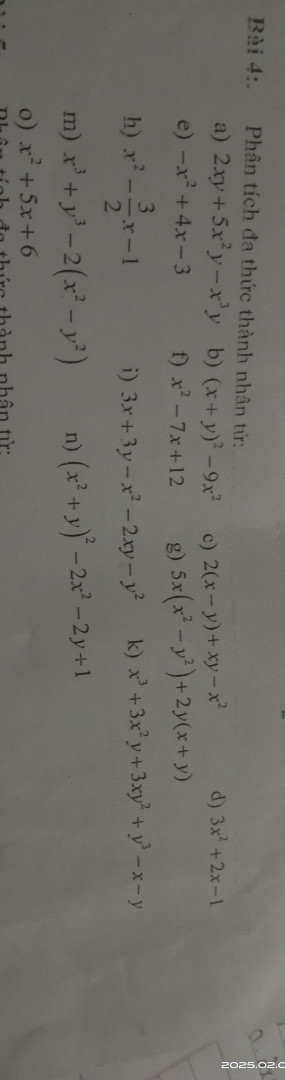 Bài 4:. Phân tích đa thức thành nhân tử:
a) 2xy + 5x²y − x³y b) (x + y)² − 9x² c) 2(x − y) + xy − x² d) 3x² + 2x − 1
e) −x² + 4x − 3 f) x² − 7x + 12 g) 5x(x² − y²) + 2y(x + y)
h) x² − 3/2 x − 1 i) 3x + 3y − x² − 2xy − y² k) x³ + 3x²y + 3xy² + y³ − x − y
m) x³ + y³ − 2(x² − y²) n) (x² + y)² − 2x² − 2y + 1
o) x² + 5x + 6
Phân tích đa thức thành nhân tử: